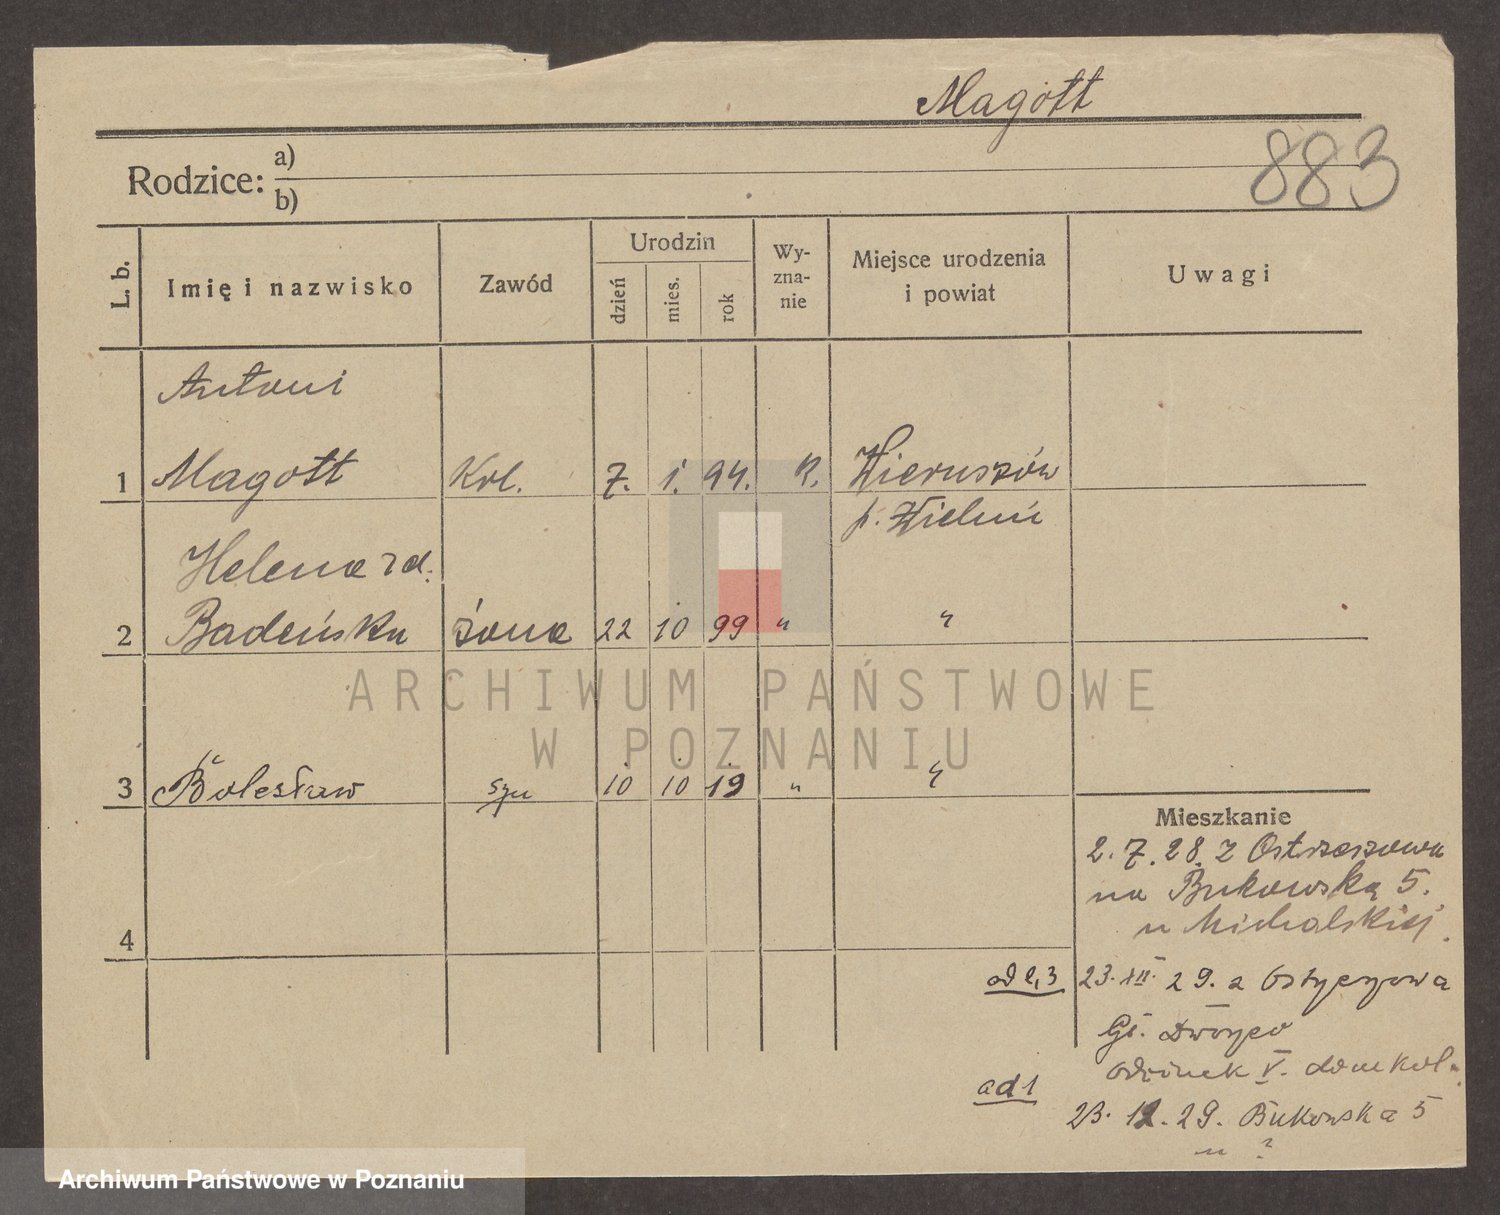 Magott
883
Rodzice: a)
b)
L. b.
Imię i nazwisko
Zawód
Urodzin
dzień
mies.
rok
Wy-
zna-
nie
Miejsce urodzenia
i powiat
Uwagi
Antoni
1 Magott Kol. 7. 1. 94. R. Wieruszów
p. Wieluń
Helena zd.
2 Badeńska żona 22 10 99 " "
3 Bolesław syn 10 10 19 " "
4
Mieszkanie
2. 7. 28. z Ostrzeszowa
na Bukowską 5.
u Michalskiej.
ad 2, 3 23. XII. 29. z Ostrzeszowa
Gł. Dworzec
odcinek V. dom kol.
ad 1
23. 12. 29. Bukowska 5
u ?
ARCHIWUM PAŃSTWOWE
W POZNANIU
Archiwum Państwowe w Poznaniu